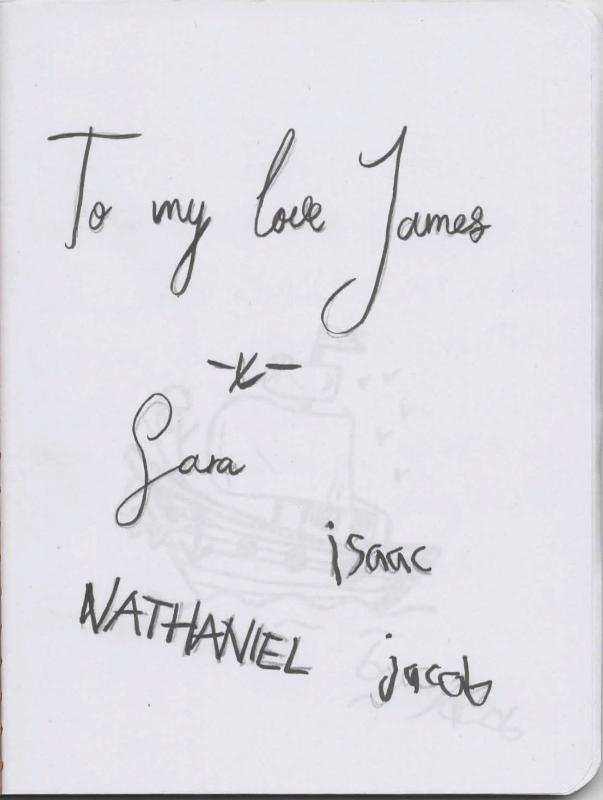 To my love James
-x-
Sara
isaac
NATHANIEL
jacob